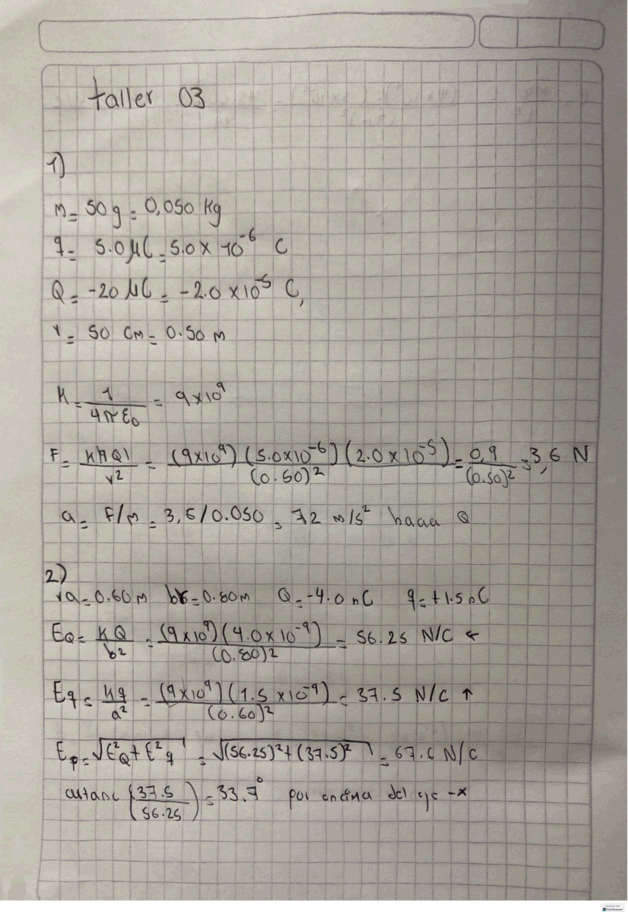 taller 03
1)
m = 50 g = 0,050 kg
q = 5.0 μC = 5.0 × 10⁻⁶ C
Q = -20 μC = -2.0 × 10⁻⁵ C,
r = 50 cm = 0.50 m
K = 1/(4πε₀) = 9×10⁹
F = K|qQ|/r² = (9×10⁹)(5.0×10⁻⁶)(2.0×10⁻⁵)/(0.50)² = 0,9/(0.50)² = 3,6 N
a = F/m = 3,6/0.050 = 72 m/s² Q
2)
a = 0.60 m b = 0.80 m Q = -4.0 nC q = +1.5 nC
E_Q = KQ/b² = (9×10⁹)(4.0×10⁻⁹)/(0.80)² = 56.25 N/C ←
E_q = Kq/a² = (9×10⁹)(1.5×10⁻⁹)/(0.60)² = 37.5 N/C ↑
E_p = √(E²_Q + E²_q) = √((56.25)² + (37.5)²) = 67.6 N/C
(37.5/56.25) = 33.7° por encima del eje -x